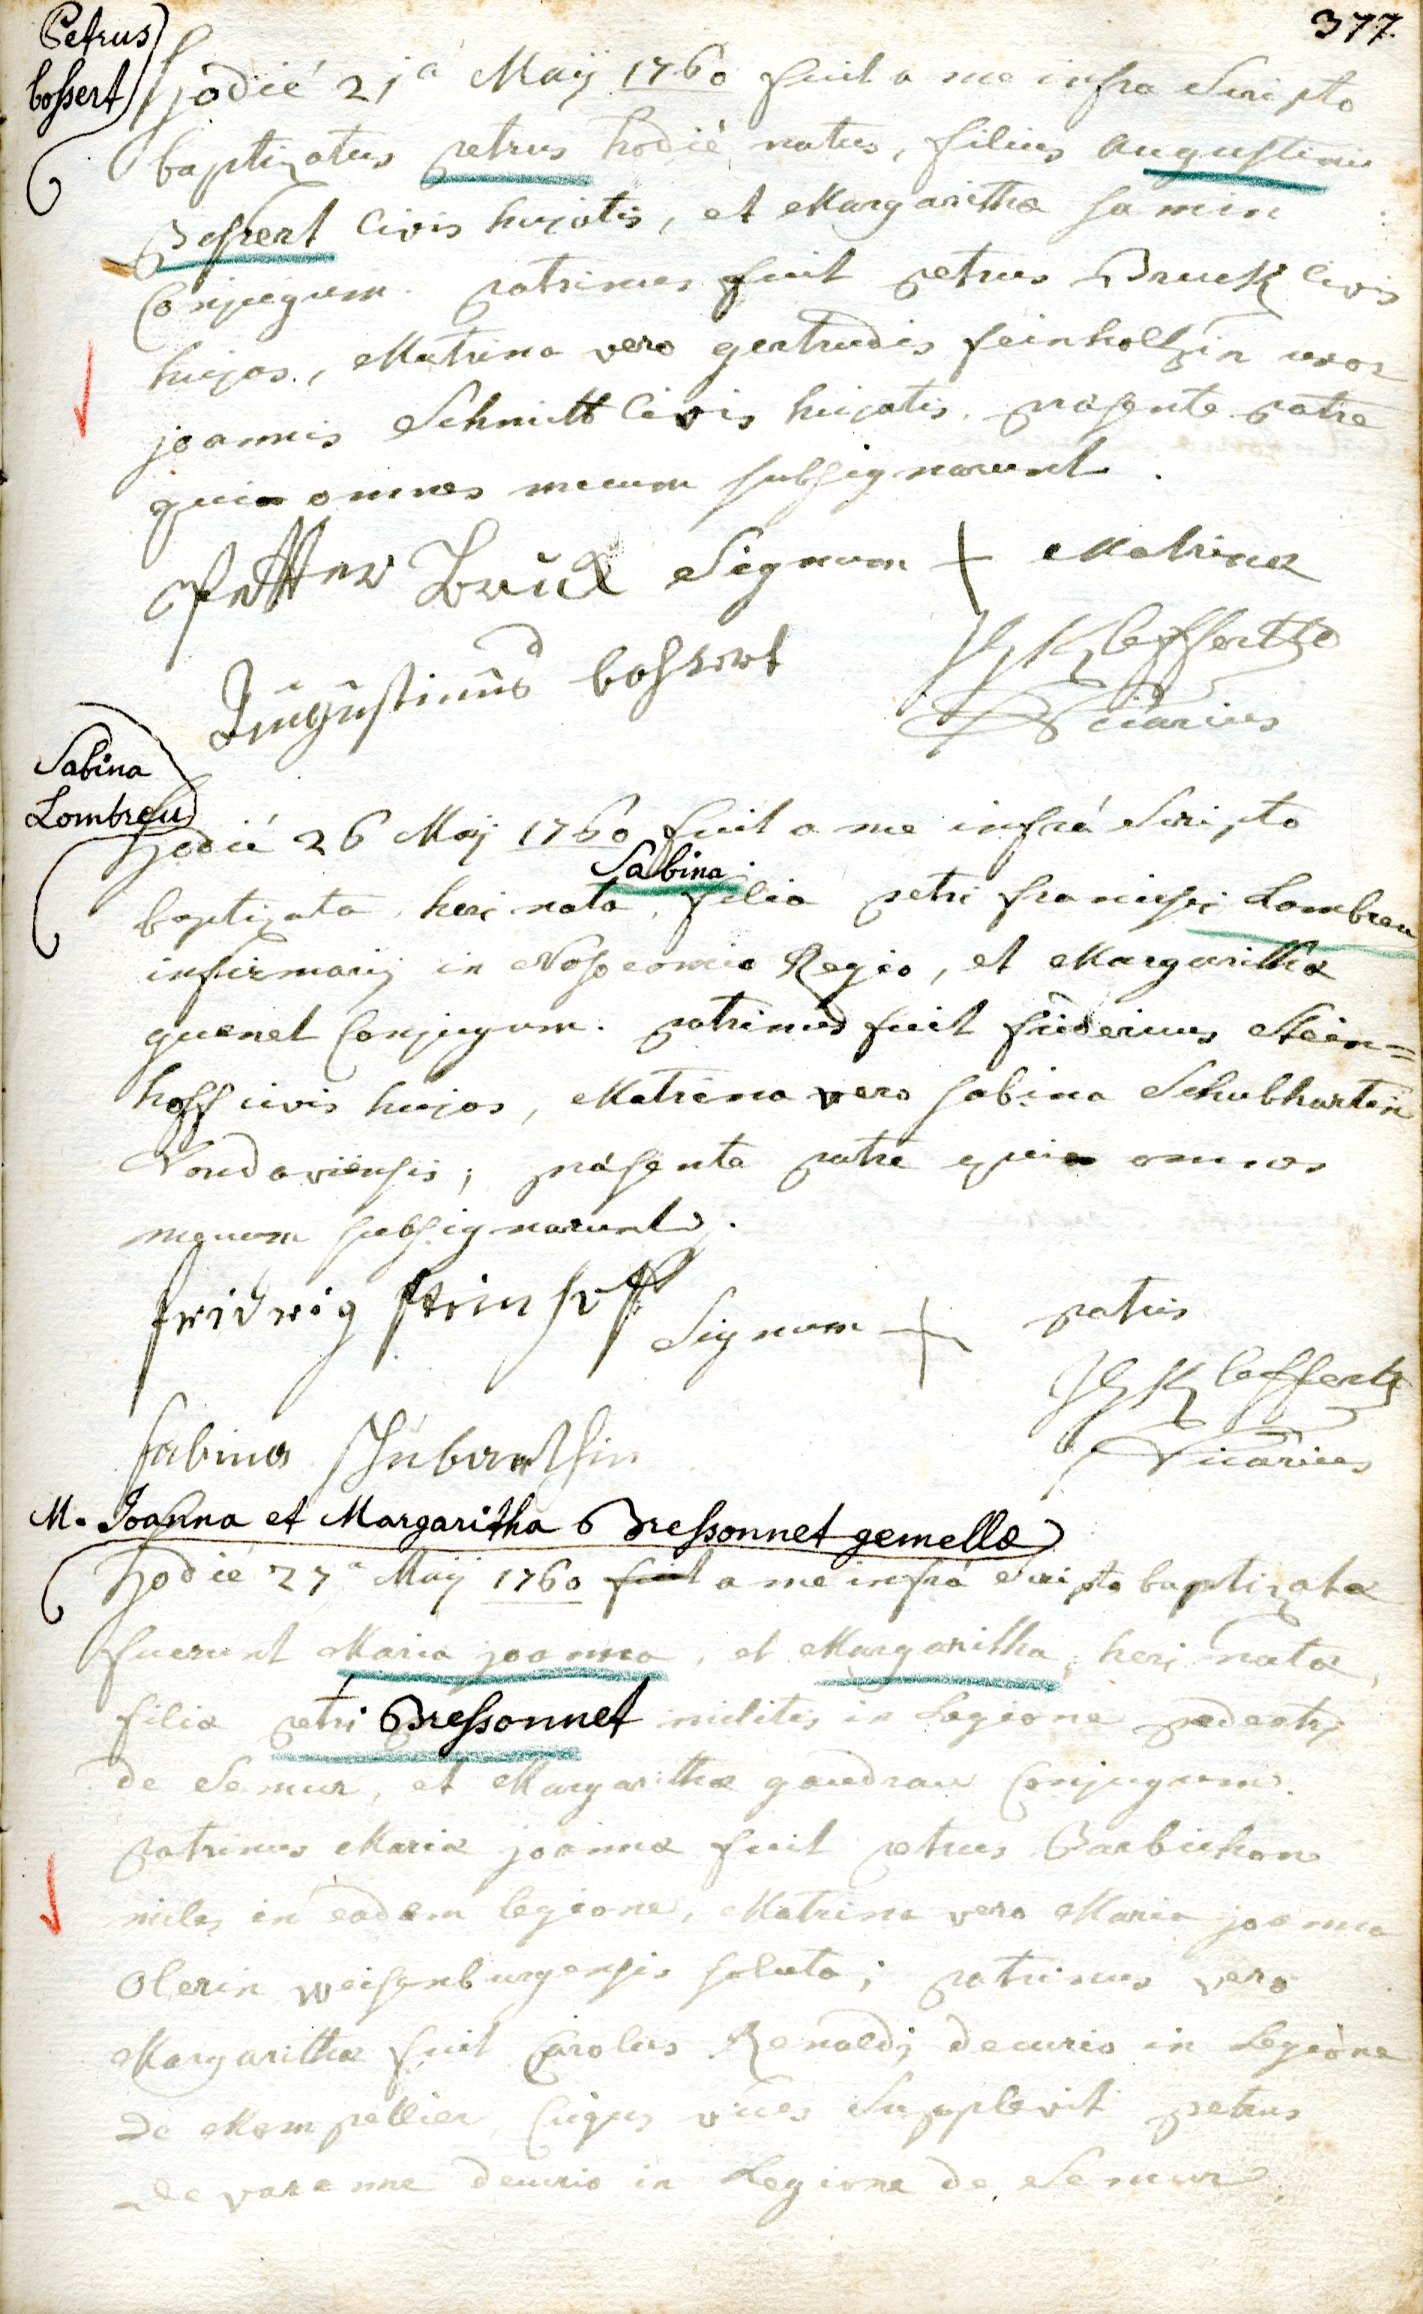 377.
Petrus
bossert
hodié 21a Maÿ 1760 fuit a me infra Scripto
baptizatus petrus hodiè natus, filius augustini
Bossert Civis hujatis, et Margarithæ samin
Conjugum. patrinus fuit petrus Bruck Civis
hujas, Matrina vero gertrudis feinholtzin uxor
joannis Schmitt Civis hujatis. præsente patre
qui omnes mecum subsignarunt.
Petter Brück Signum + Matrinæ
Augustinus bossert Kleffertz
Vicarius
Sabina
Lombreu
hodié 26 Maÿ 1760 fuit a me infrá Scripto
Sabina
baptizata heri nata, filia petri francisci Lombreu
infirmarij in Nosocomio Regio, et Margarithæ
quenet Conjugum. patrinus fuit fridericus Stein=
hoff civis hujas, Matrina vero sabina Schubhartin
Landaviensis; præsente patre qui omnes
mecum subsignarunt.
fridrig steinhoff Signum + patris
Kleffertz
Sabina schubarthin Vicarius
M. Joanna et Margaritha Bressonnet gemellæ
hodié 27a Maÿ 1760 fuit a me infrá Scripto baptizatæ
fuerunt Maria joanna, et Margaritha heri natæ,
filiæ petri Bressonnet militis in Legione pedestri
de Semur, et Margarithæ gaudrau Conjugum.
patrinus Mariæ joannæ fuit petrus Barbichon
miles in eadem legione, Matrina vero Maria joanna
Olerin weisenburgensis soluta; patrinus vero
Margarithæ fuit Carolus Renaldj decurio in Legione
de Mompellier Cujus vices Supplevit petrus
de varenne decurio in Legione de Semur.